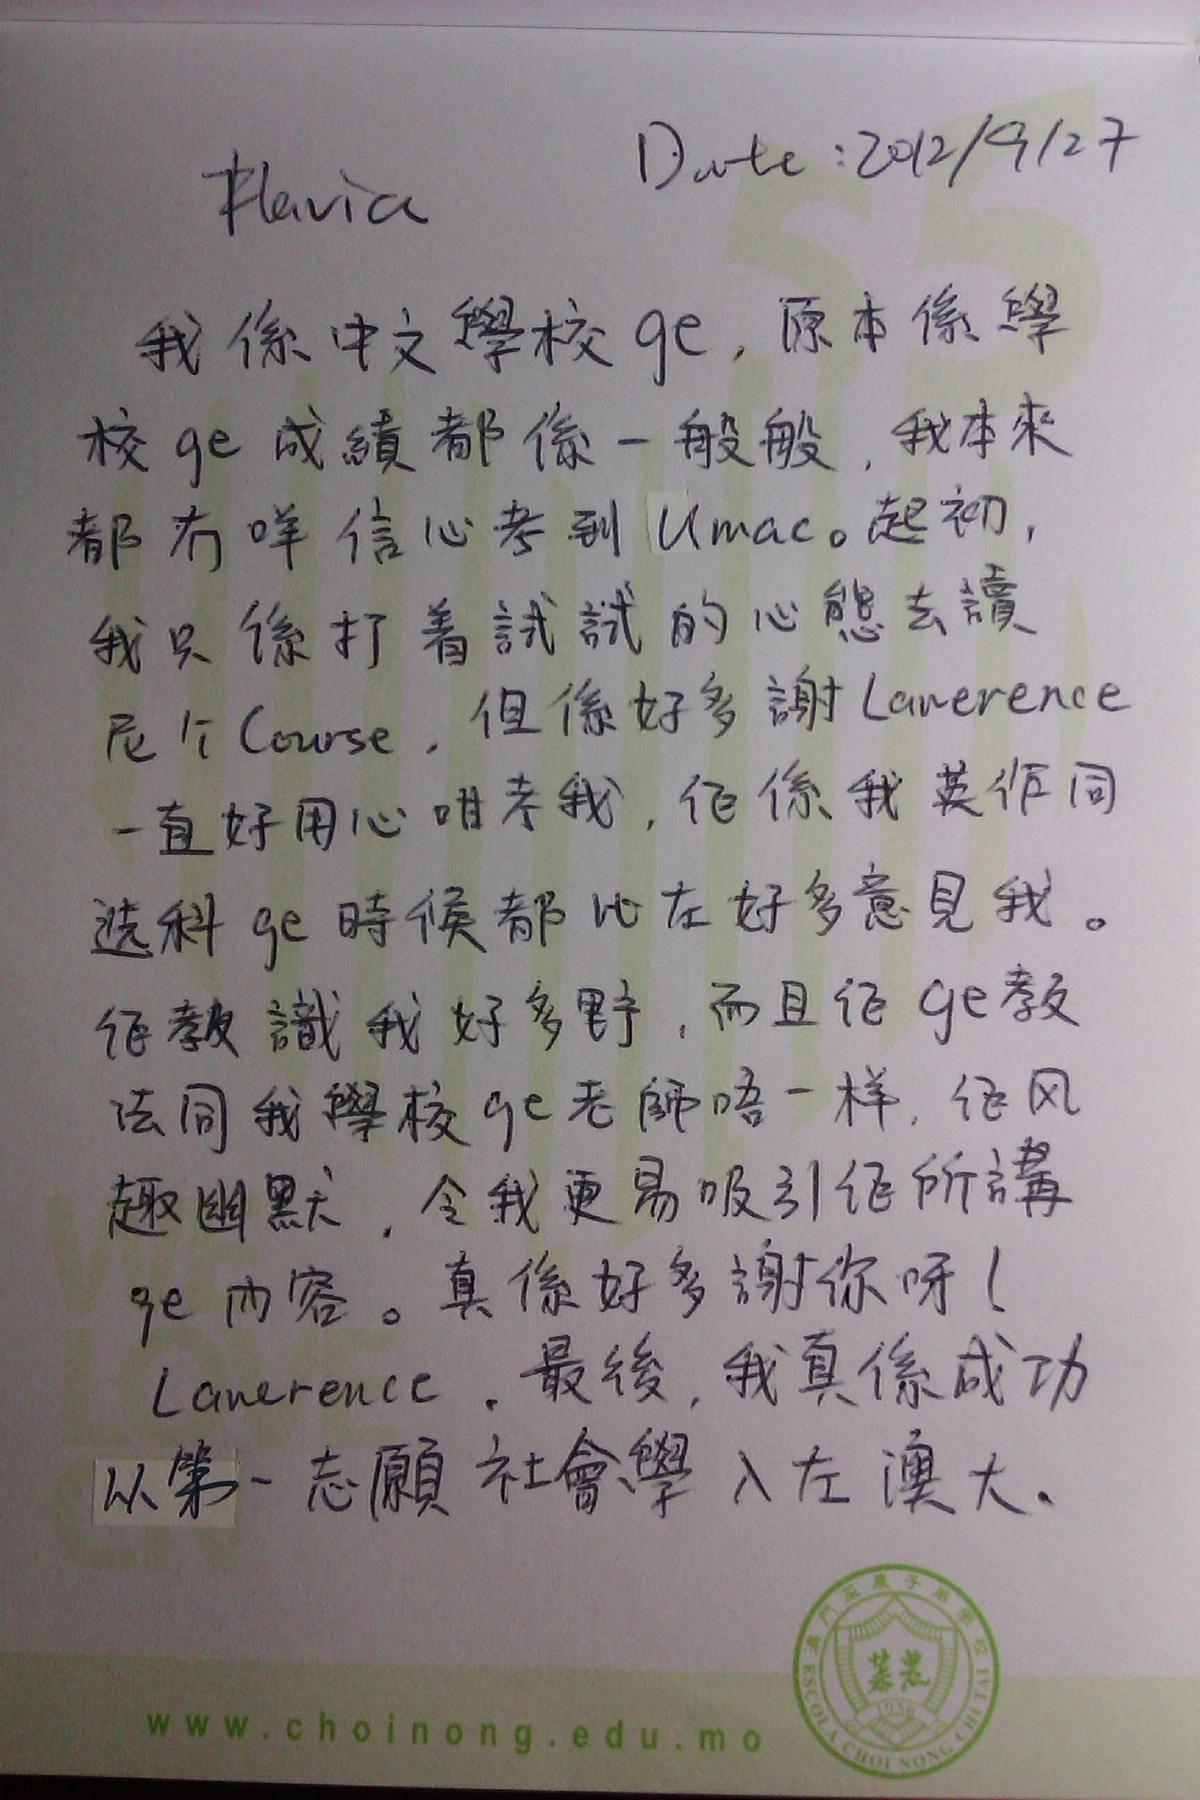 Date:2012/9/27
Flavia
我係中文學校ge，原本係學
校ge成績都係一般般，我本來
都冇咩信心考到Umac。起初，
我只係打着試試的心態去讀
尼个Course，但係好多謝Lawerence
一直好用心咁孝我，佢係我英作同
选科ge時候都比左好多意見我。
佢教識我好多野，而且佢ge教
法同我學校ge老師唔一样，佢风
趣幽默，令我更易吸引佢所講
ge內容。真係好多謝你呀！
Lawerence。最後，我真係成功
以第一志願社會學入左澳大。
WE
LOVE
CN
55
澳門菜農子弟學校
菜農
1956
ESCOLA CHOI NONG CHI TAI
www.choinong.edu.mo